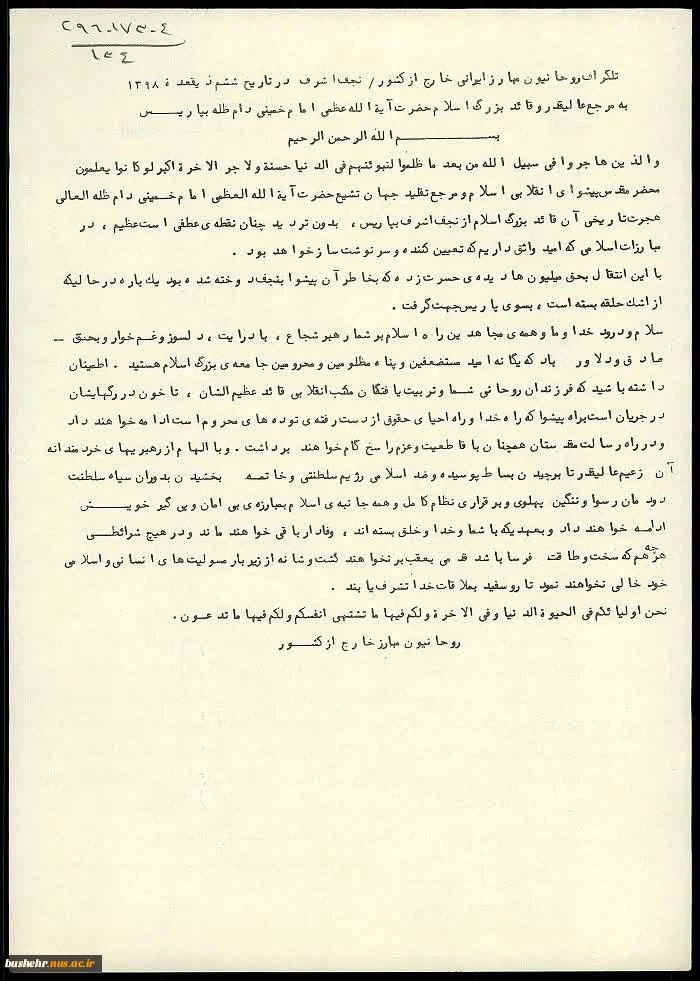 ۲۹۶-۱۷۳-۴
۱۳۴
تلگراف روحانیون مبارز ایرانی خارج از کشور / نجف اشرف در تاریخ ششم ذیقعده ۱۳۹۸
به مرجع عالیقدر و قائد بزرگ اسلام حضرت آیة الله عظمی امام خمینی دام ظله بپاریس
بسم الله الرحمن الرحیم
والذین هاجروا فی سبیل الله من بعد ما ظلموا لنبوئنهم فی الدنیا حسنة ولاجر الاخرة اکبر لوکانوا یعلمون
محضر مقدس پیشوای انقلابی اسلام و مرجع تقلید جهان تشیع حضرت آیة الله العظمی امام خمینی دام ظله العالی
هجرت تاریخی آن قائد بزرگ اسلام از نجف اشرف بپاریس، بدون تردید چنان نقطه ی عطفی است عظیم، در
مبارزات اسلامی که امید واثق داریم که تعیین کننده و سرنوشت ساز خواهد بود.
با این انتقال بحق میلیون ها دیده ی حسرت زده که بخاطر آن پیشوا بنجف دوخته شده بود یك باره در حالیکه
از اشك حلقه بسته است، بسوی پاریس جهت گرفت.
سلام و درود خدا و ما و همه ی مجاهدین راه اسلام بر شما رهبر شجاع، با درایت، دلسوز و غمخوار و بحق -
صادق و دلاور باد که یگانه امید مستضعفین و پناه مظلومین و محرومین جامعه ی بزرگ اسلام هستید. اطمینان
داشته باشید که فرزندان روحانی شما و تربیت یافتگان مکتب انقلابی قائد عظیم الشان، تا خون در رگهایشان
در جریان است براه پیشوا که راه خدا و راه احیای حقوق از دست رفته ی توده های محروم است ادامه خواهند داد
و در راه رسالت مقدستان همچنان با قاطعیت و عزم راسخ گام خواهند برداشت. و با الهام از رهبریهای خردمندانه
آن زعیم عالیقدر تا برچیدن بساط پوسیده و ضد اسلامی رژیم سلطنتی و خاتمه بخشیدن بدوران سیاه سلطنت
دودمان رسوا و ننگین پهلوی و برقراری نظام کامل و همه جانبه ی اسلام بمبارزه ی بی امان و پی گیر خویش
ادامه خواهند داد و بعهدیکه با شما و خدا و خلق بسته اند، وفادار باقی خواهند ماند و در هیچ شرائطی
هر چه هم که سخت و طاقت فرسا باشد قدمی بعقب برنخواهند گشت و شانه از زیر بار مسولیت های انسانی و اسلامی
خود خالی نخواهند نمود تا روسفید بملاقات خدا تشرف یابند.
نحن اولیائکم فی الحیوة الدنیا وفی الاخرة ولکم فیها ما تشتهی انفسکم ولکم فیها ما تدعون.
روحانیون مبارز خارج از کشور
bushehr.nus.ac.ir